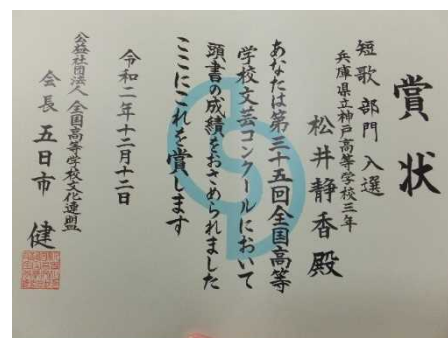 賞状
短歌部門 入選
兵庫県立神戸高等学校三年
松井静香殿
あなたは第三十五回全国高等
学校文芸コンクールにおいて
頭書の成績をおさめられました
ここにこれを賞します
令和二年十二月十二日
公益社団法人 全国高等学校文化連盟
会長 五日市 健